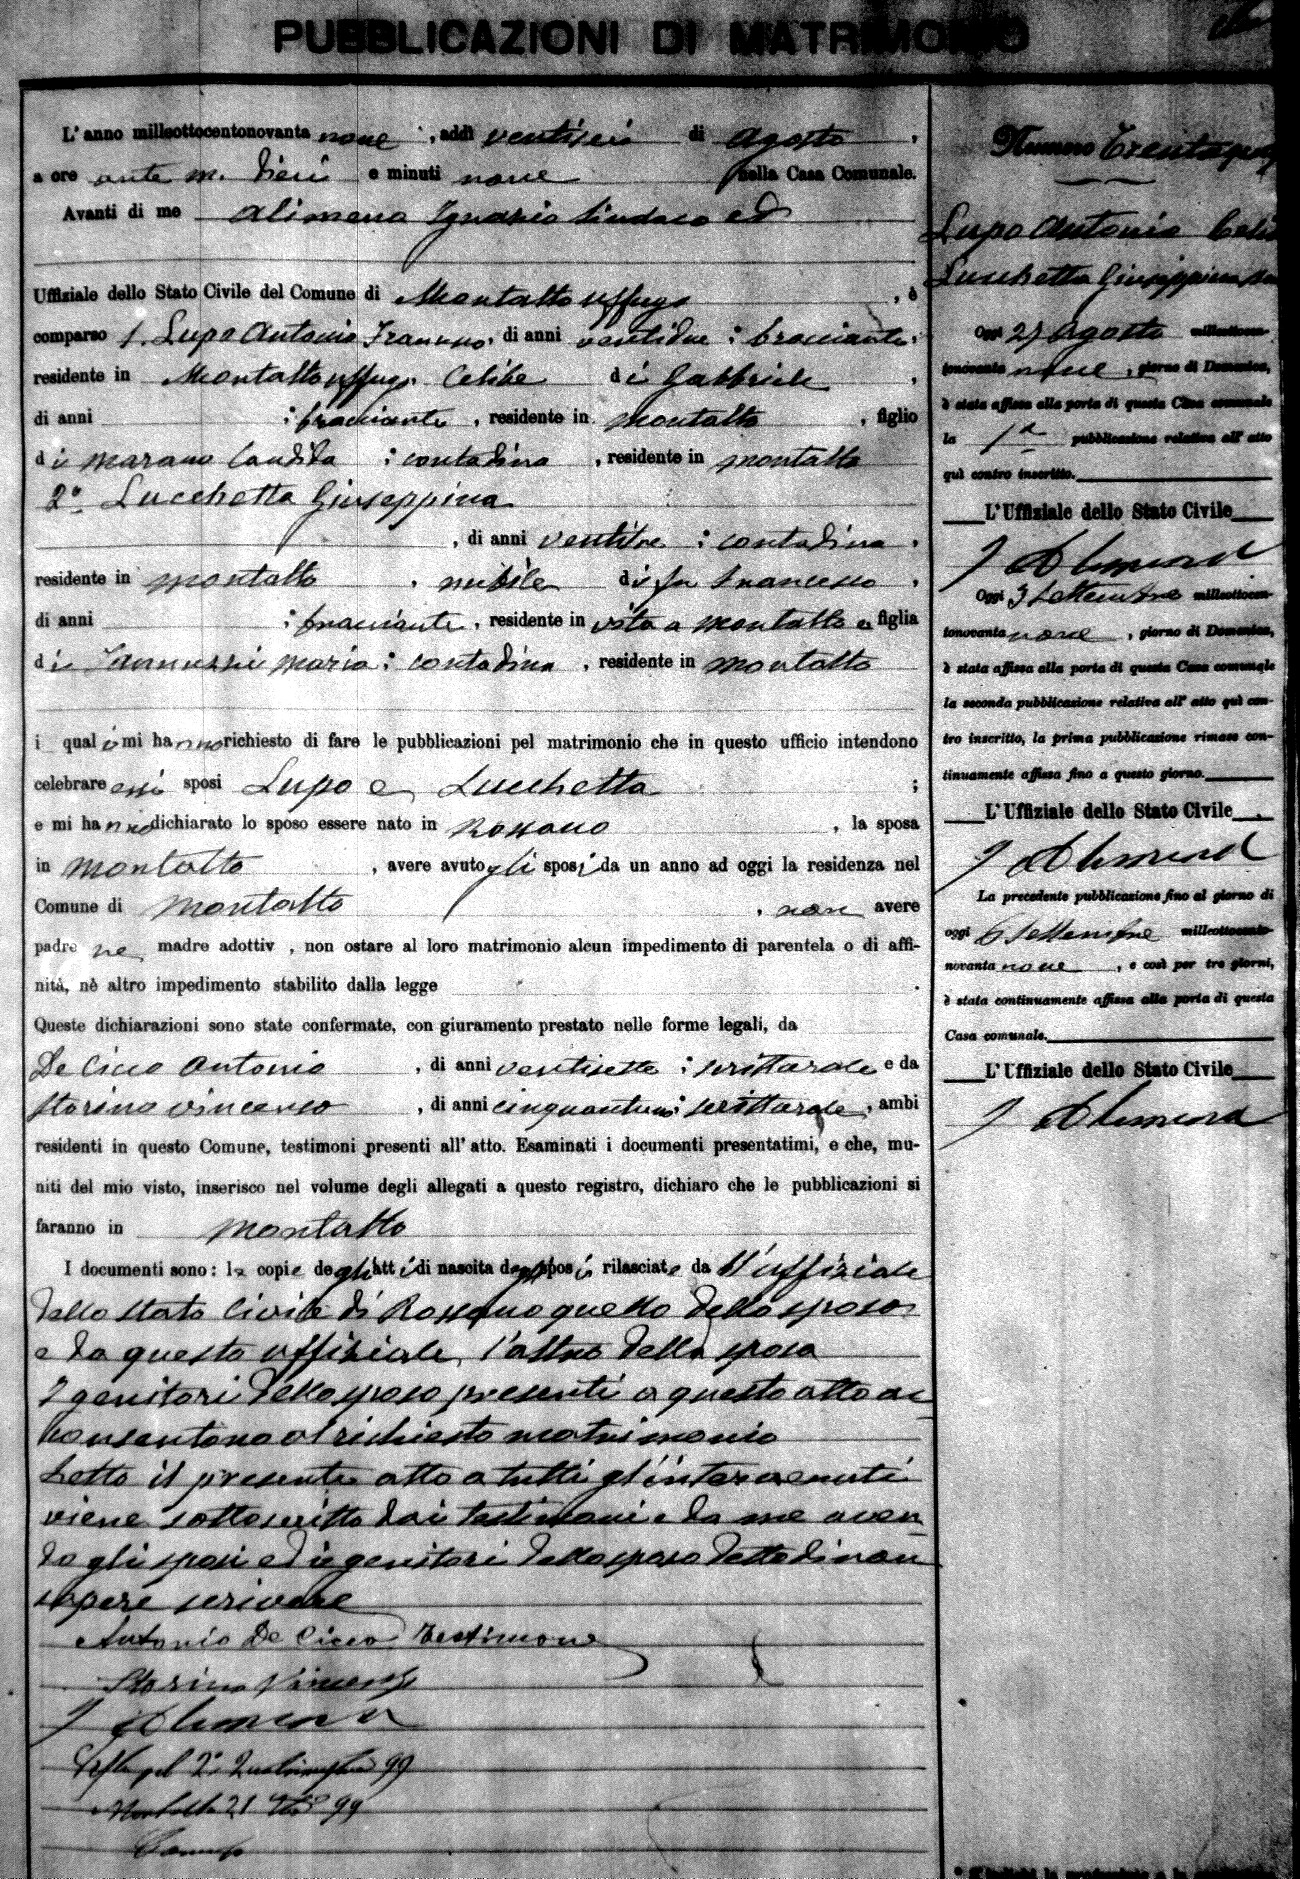 PUBBLICAZIONI DI MATRIMONIO
L'anno milleottocentonovanta nove, addì ventisei di agosto,
a ore ante m. dieci e minuti nove nella Casa Comunale.
Avanti di me Alimena Ignazio Sindaco ed
Uffiziale dello Stato Civile del Comune di Montalto Uffugo, è
comparso 1. Lupo Antonio, di anni ventidue; bracciante,
residente in Montalto Uffugo Celibe di Gabbriele,
di anni ; bracciante, residente in Montalto, figlio
di Marano Candida; contadina, residente in Montalto
2° Lucchetta Giuseppina
, di anni ventitre; contadina,
residente in Montalto, nubile di fu Francesco,
di anni ; bracciante, residente in vita a Montalto e figlia
di Iannuzzi Maria; contadina, residente in Montalto
i quali mi hanno richiesto di fare le pubblicazioni pel matrimonio che in questo ufficio intendono
celebrare essi sposi Lupo e Lucchetta;
e mi hanno dichiarato lo sposo essere nato in Rossano, la sposa
in Montalto, avere avuto gli sposi da un anno ad oggi la residenza nel
Comune di Montalto, non avere
padre ne madre adottiv , non ostare al loro matrimonio alcun impedimento di parentela o di affi-
nità, nè altro impedimento stabilito dalla legge .
Queste dichiarazioni sono state confermate, con giuramento prestato nelle forme legali, da
De Cicco Antonio, di anni ventisette; scritturale e da
Storino Vincenzo, di anni cinquantuno; scritturale, ambi
residenti in questo Comune, testimoni presenti all' atto. Esaminati i documenti presentatimi, e che, mu-
niti del mio visto, inserisco nel volume degli allegati a questo registro, dichiaro che le pubblicazioni si
faranno in Montalto
I documenti sono: le copie degli atti di nascita degli sposi rilasciate da ll'uffiziale
dello stato Civile di Rossano quello dello sposo
e da questo uffiziale, l'altro della sposa
I genitori dello sposo presenti a questo atto ac
consentono al richiesto matrimonio
Letto il presente atto a tutti gl'intervenuti
viene sottoscritto dai testimoni e da me aven
do gli sposi ed i genitori dello sposo detto di non
sapere scrivere
Antonio De Cicco Testimone
Storino Vincenzo
I Alimena
pel 2° Quadrimestre 99
Montalto 21 99
Numero
Lupo Antonio
Lucchetta Giuseppina
Oggi 27 Agosto milleottocen-
tonovanta nove, giorno di Domenica,
è stata affissa alla porta di questa Casa comunale
la 1ª pubblicazione relativa all' atto
quì contro inscritto.
L'Uffiziale dello Stato Civile
I Alimena
Oggi 3 Settembre milleottocen-
tonovanta nove, giorno di Domenica,
è stata affissa alla porta di questa Casa comunale
la seconda pubblicazione relativa all' atto quì con-
tro inscritto, la prima pubblicazione rimase con-
tinuamente affissa fino a questo giorno.
L'Uffiziale dello Stato Civile
I Alimena
La precedente pubblicazione fino al giorno di
oggi 6 Settembre milleottocento-
novanta nove, e così per tre giorni,
è stata continuamente affissa alla porta di questa
Casa comunale.
L'Uffiziale dello Stato Civile
I Alimena